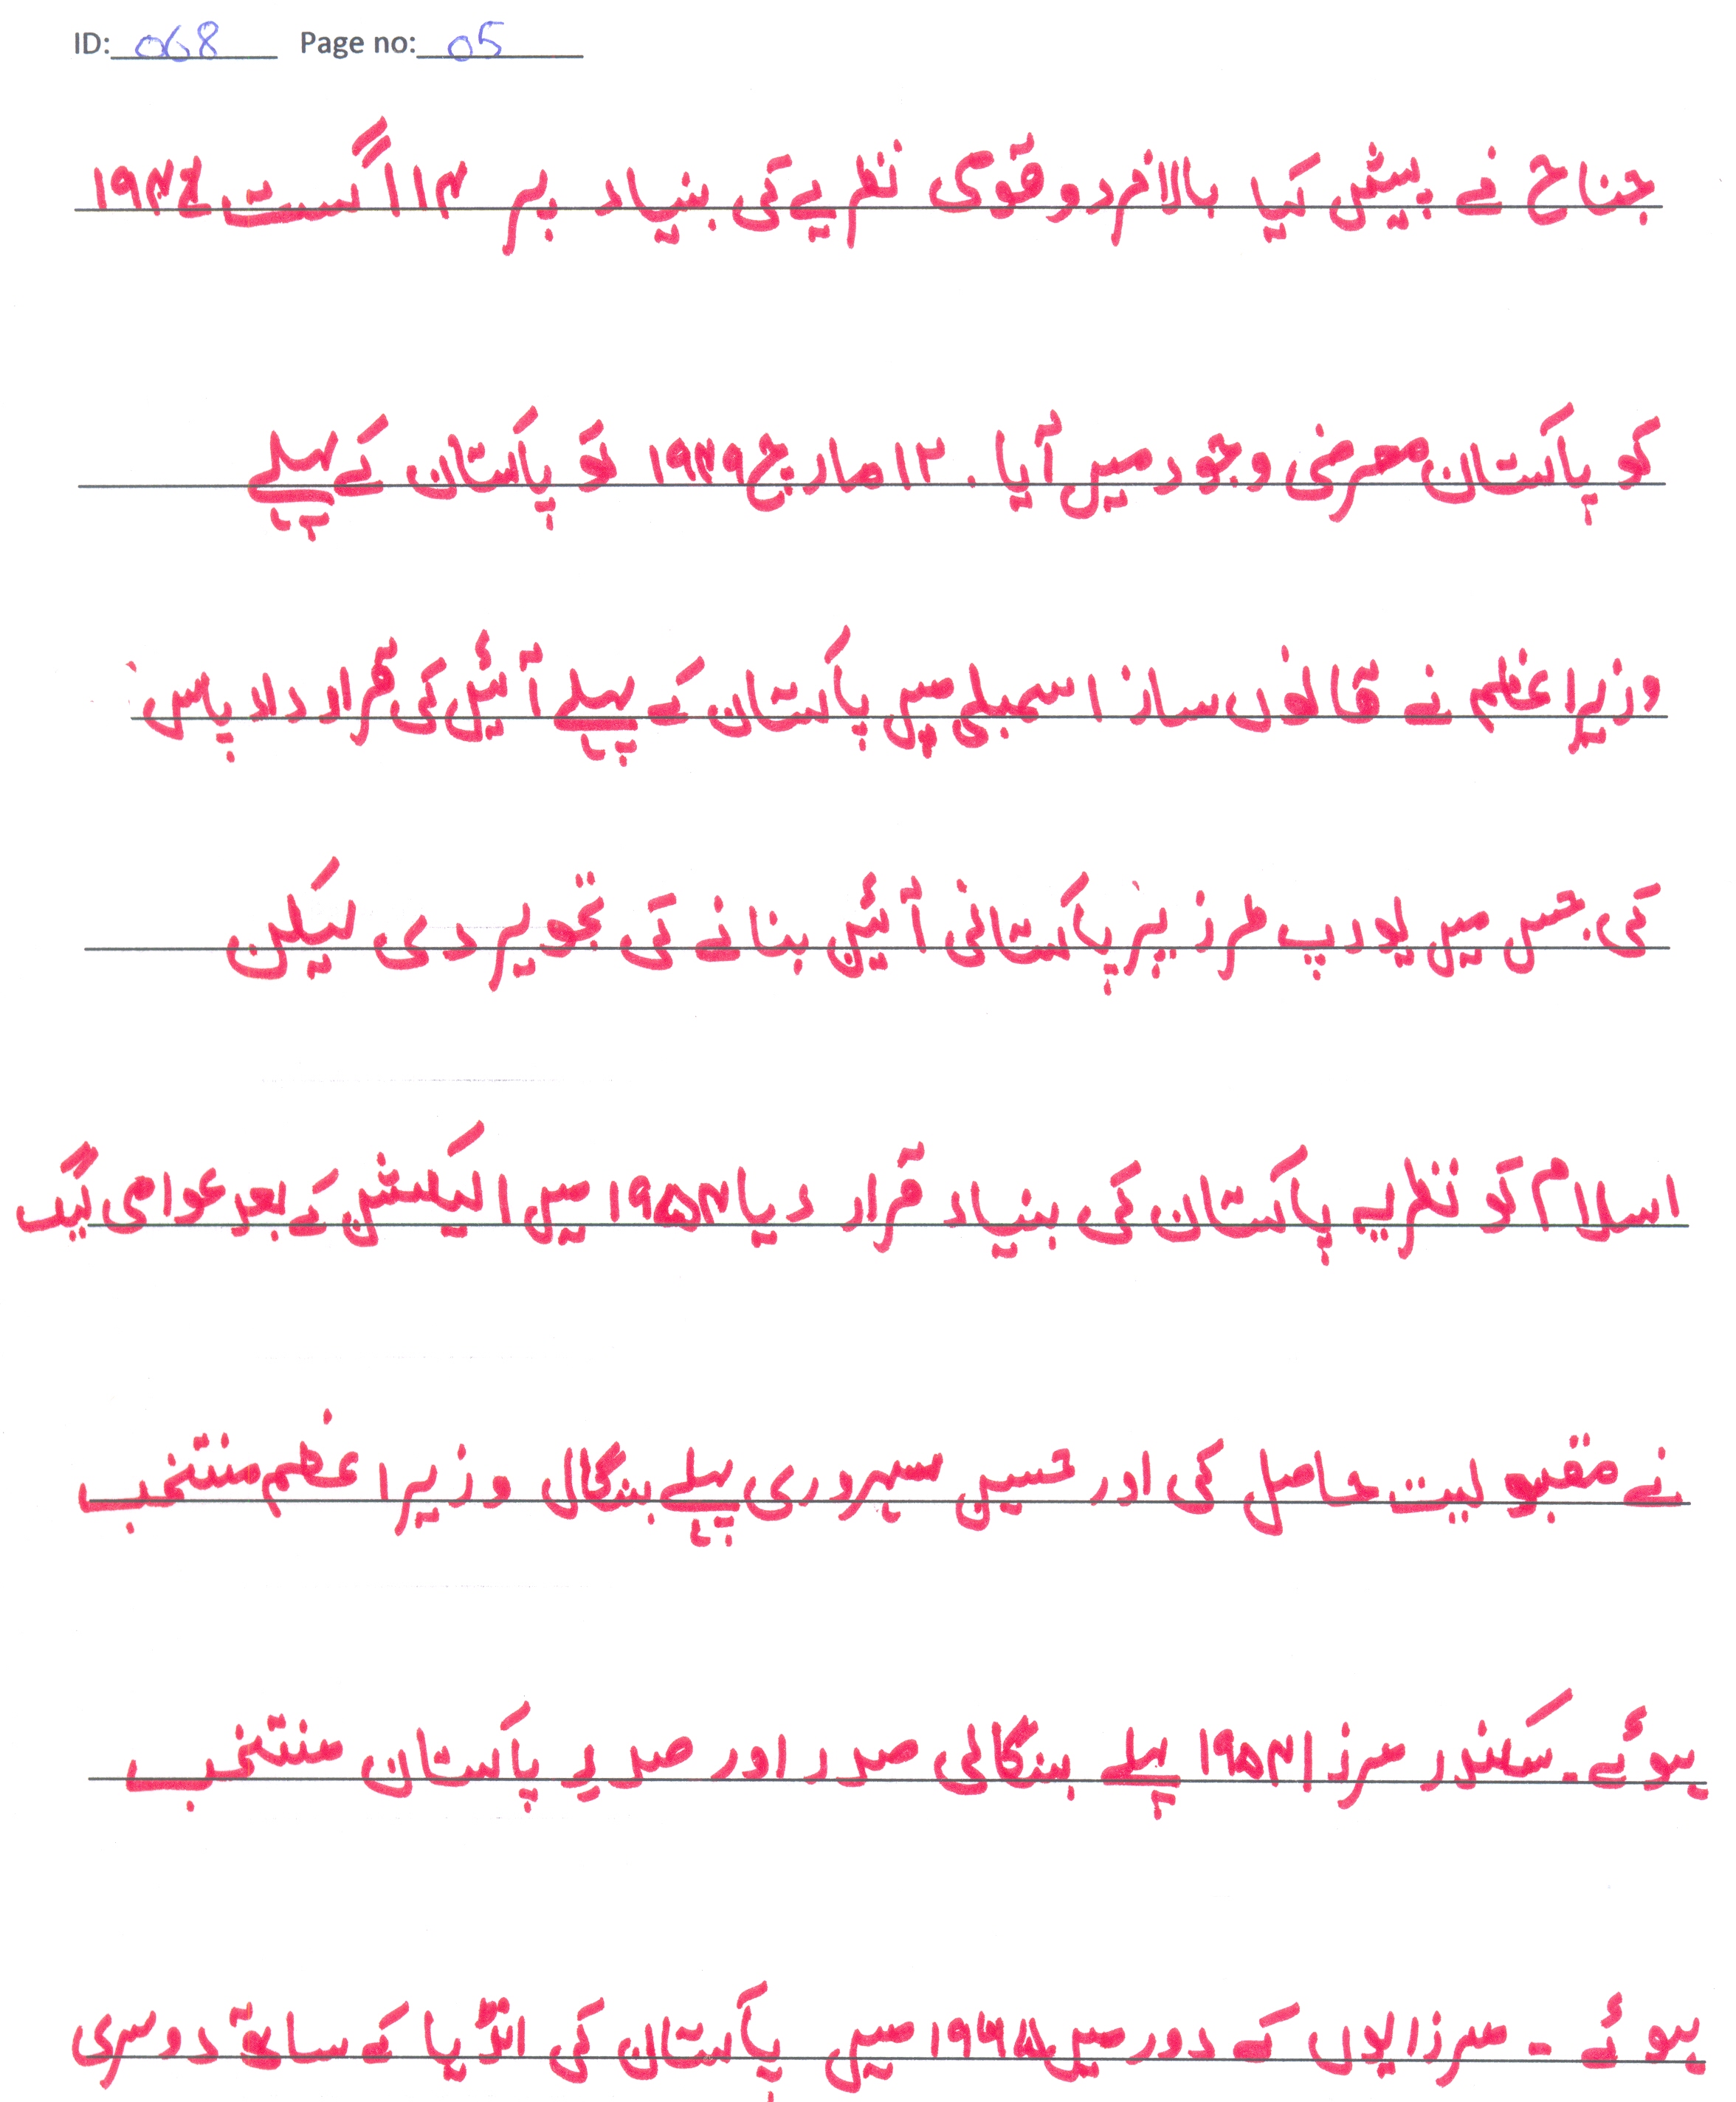 ID: 068 Page no: 05
جناح نے پیش کیا بالاخر دو قومی نظریے کی بنیاد پر ۱۴ اگست ۱۹۴۷
کو پاکستان معرض وجود میں آیا۔ ۱۲ مارچ ۱۹۴۹ کو پاکستان کے پہلے
وزیراعظم نے قانون ساز اسمبلی میں پاکستان کے پہلے آئین کی قرارداد پاس
کی۔ جس میں یورپ طرز پر پاکستانی آئین بنانے کی تجویر دی لیکن
اسلام کو نظریہ پاکستان کی بنیاد قرار دیا ۱۹۵۴ میں الیکشن کے بعد عوامی لیگ
نے مقبولیت حاصل کی اور حسین سہروری پہلے بنگال وزیراعظم منتخب
ہوئے۔ سکندر مرزا ۱۹۵۴ پہلے بنگالی صدر اور صدیے پاکستان منتخب
ہوئے ۔ مرزا ایوں کے دور میں ۱۹۶۵ میں پاکستان کی انڈیا کے ساتھ دوسری